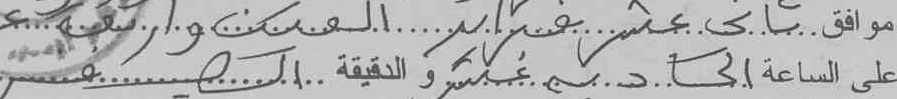 موافق ثاني عشر فبراير الفين واربعة
على الساعة الحادية عشر و الدقيقة الصفر